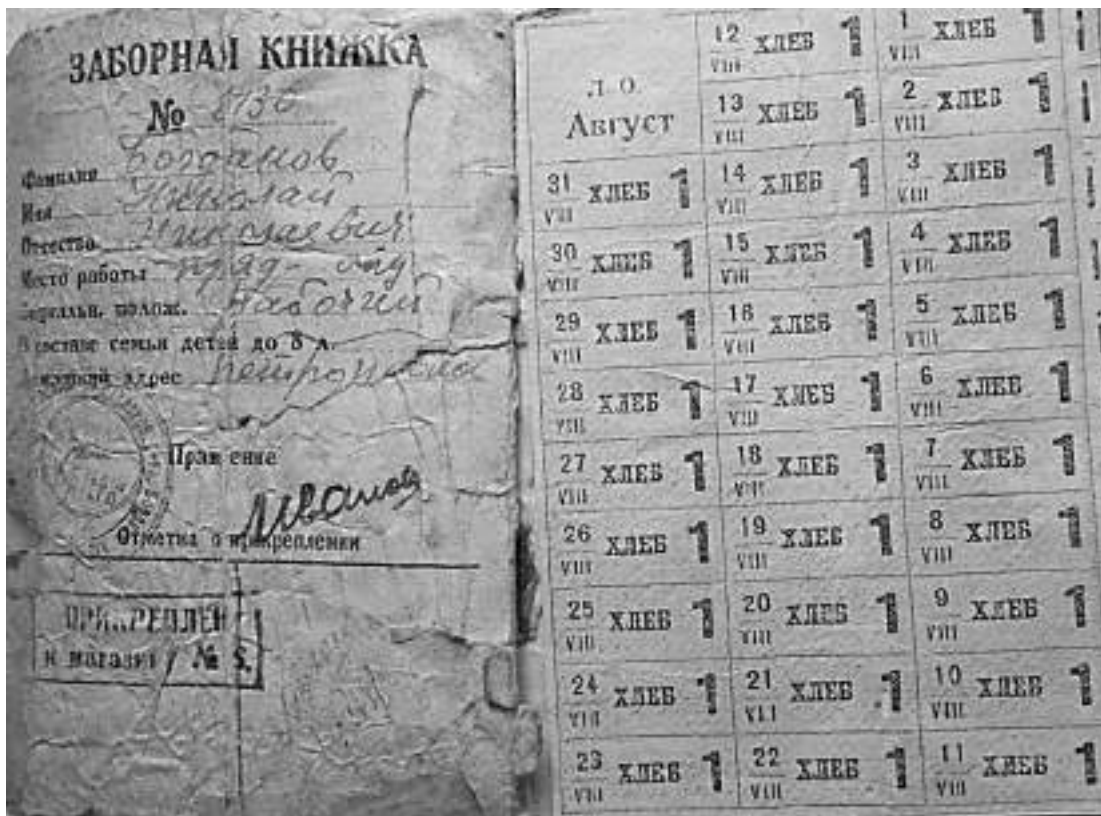 ЗАБОРНАЯ КНИЖКА
№
Фамилия Богданов
Имя Николай
Отчество Николаевич
Место работы
полож. Рабочий
семьи детей до 8 л.
адрес
Правление
Иванов
Отметка о прикреплении
ПРИКРЕПЛЕН
к магазину № 5.
Л. О.
Август
12 VIII ХЛЕБ 1
1 VIII ХЛЕБ 1
13 VIII ХЛЕБ 1
2 VIII ХЛЕБ 1
31 VIII ХЛЕБ 1
14 VIII ХЛЕБ 1
3 VIII ХЛЕБ 1
30 VIII ХЛЕБ 1
15 VIII ХЛЕБ 1
4 VIII ХЛЕБ 1
29 VIII ХЛЕБ 1
16 VIII ХЛЕБ 1
5 VIII ХЛЕБ 1
28 VIII ХЛЕБ 1
17 VIII ХЛЕБ 1
6 VIII ХЛЕБ 1
27 VIII ХЛЕБ 1
18 VIII ХЛЕБ 1
7 VIII ХЛЕБ 1
26 VIII ХЛЕБ 1
19 VIII ХЛЕБ 1
8 VIII ХЛЕБ 1
25 VIII ХЛЕБ 1
20 VIII ХЛЕБ 1
9 VIII ХЛЕБ 1
24 VIII ХЛЕБ 1
21 VIII ХЛЕБ 1
10 VIII ХЛЕБ 1
23 VIII ХЛЕБ 1
22 VIII ХЛЕБ 1
11 VIII ХЛЕБ 1